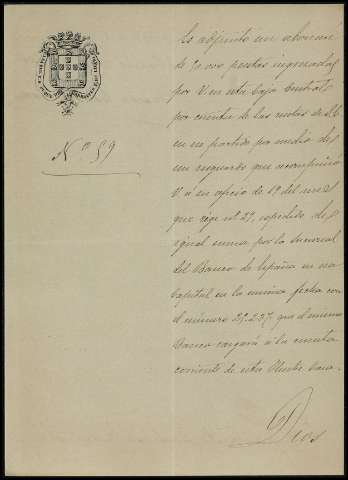 Nº 59
Es adjunto un abonaré
de 50.000 pesetas ingresadas
por V. en esta Caja Central
por cuenta de las rentas de
en un partido por medio de
un resguardo que acompañó
V. á su oficio de 19 del mes
que rige nº 27, expedido de
igual suma por la Sucursal
del Banco de España en esa
Capital en la misma fecha con
el número 35.237, que el mismo
Banco cargará á la cuenta
corriente de esta Ilustre
Dios